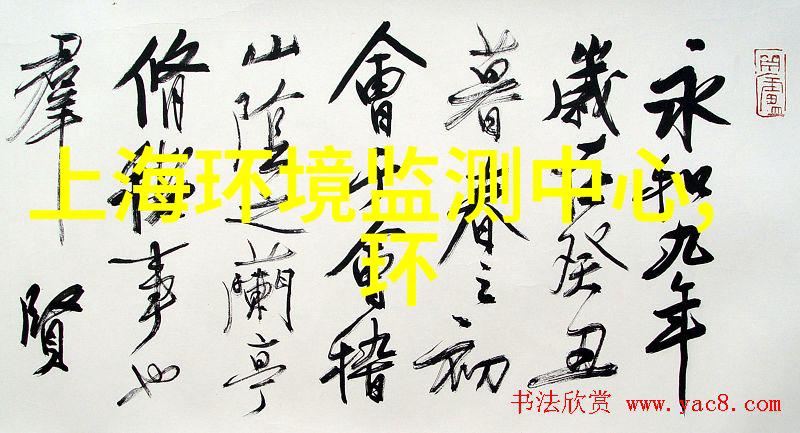 永和九年
歲在癸丑
暮春之初
會于會稽
山陰之蘭亭
脩禊事也
羣賢
上海环境监测中心,
环
书法欣赏 www.yac8.com